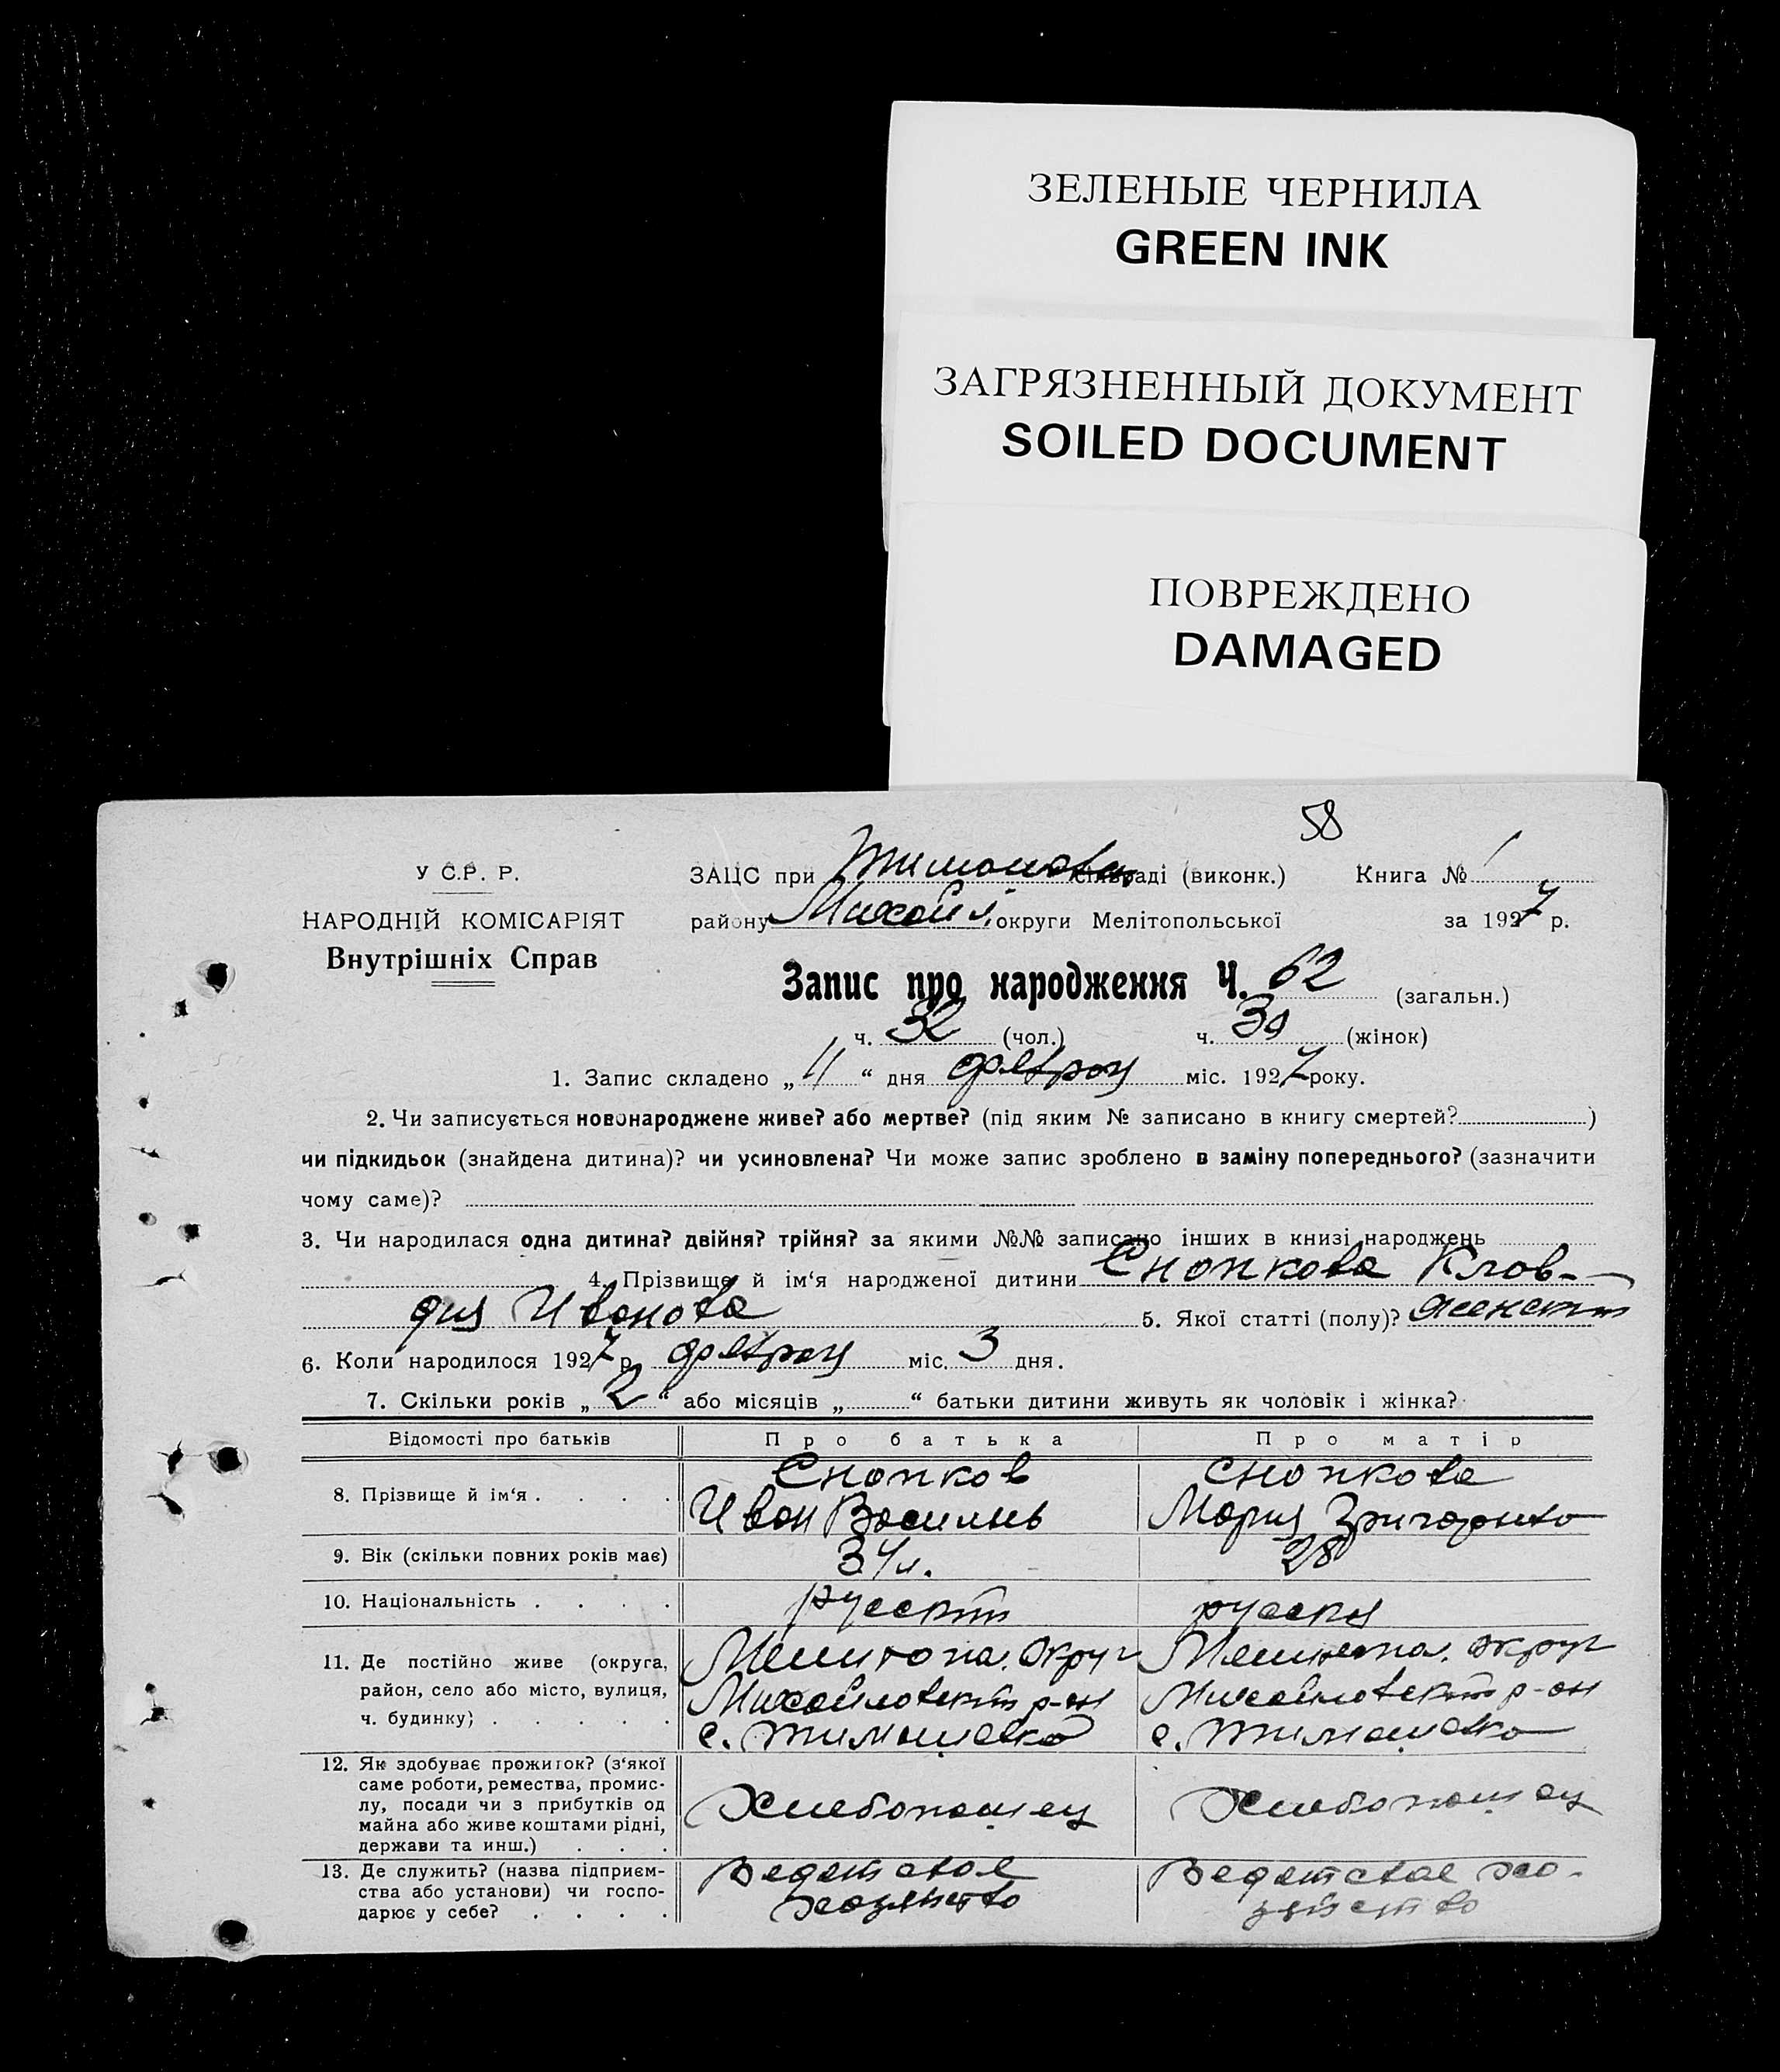 ЗЕЛЕНЫЕ ЧЕРНИЛА
GREEN INK
ЗАГРЯЗНЕННЫЙ ДОКУМЕНТ
SOILED DOCUMENT
ПОВРЕЖДЕНО
DAMAGED
58
У С.Р. Р.
НАРОДНІЙ КОМІСАРІЯТ
Внутрішніх Справ
ЗАЦС при сільраді (виконк.) Книга № 1
району Михайл. округи Мелітопольської за 1927 р.
Запис про народження Ч. 62 (загальн.)
ч. 32 (чол.) ч. 30 (жінок)
1. Запис складено „ 11 “ дня февраля міс. 1927 року.
2. Чи записується новонароджене живе? або мертве? (під яким № записано в книгу смертей? )
чи підкидьок (знайдена дитина)? чи усиновлена? Чи може запис зроблено в заміну попереднього? (зазначити
чому саме)?
3. Чи народилася одна дитина? двійня? трійня? за якими №№ записано інших в книзі народжень
4. Прізвище й ім‘я народженої дитини Снопкова Клов-
дия Иванова 5. Якої статті (полу)? женский
6. Коли народилося 1927 р. февраля міс. 3 дня.
7. Скільки років „ 2 “ або місяців „ “ батьки дитини живуть як чоловік і жінка?
Відомості про батьків Про батька Про матір
8. Прізвище й ім‘я . . . . Снопков Иван Василиев Снопкова Мария
9. Вік (скільки повних років має) 34 л. 28
10. Національність . . . . русский русская
11. Де постійно живе (округа,
район, село або місто, вулиця,
ч. будинку) . . . . .
Мелитопа. округ
Михайловский р-он
с. Тимошовка
Мелитопа. округ
Михайловский р-он
с. Тимошовка
12. Як здобуває прожиток? (з‘якої
саме роботи, ремества, промис-
лу, посади чи з прибутків од
майна або живе коштами рідні,
держави та инш.) . . .
Хлебопашец
Хлебопашец
13. Де служить? (назва підприєм-
ства або установи) чи госпо-
дарює у себе? . . . .
хозяйство
хо-
зяйство